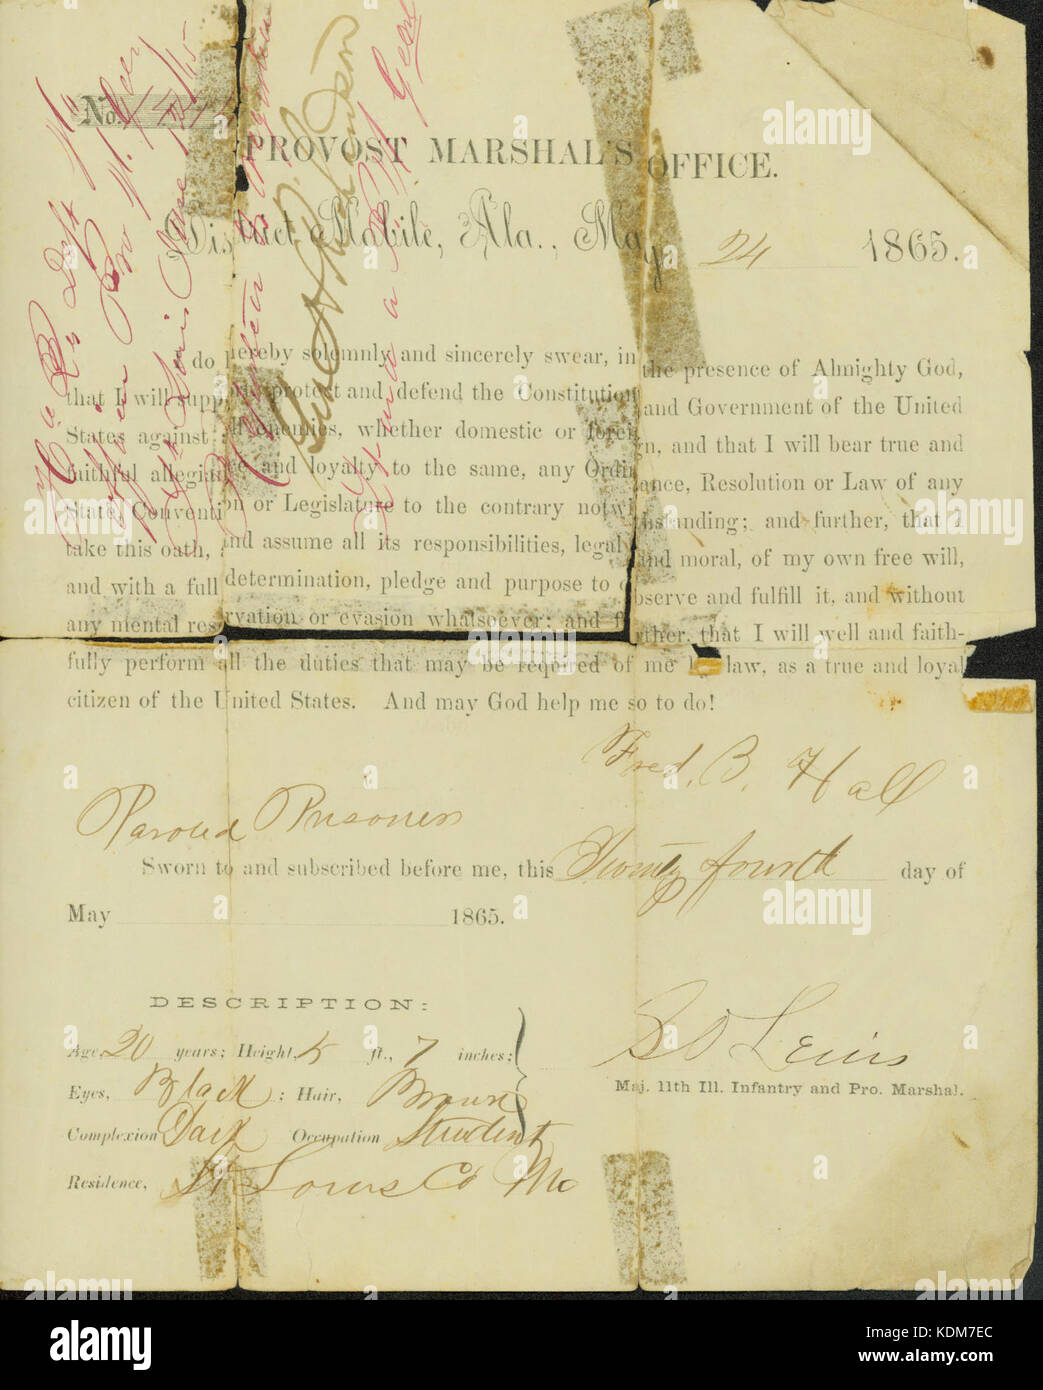 No.
PROVOST MARSHAL'S OFFICE.
District Mobile, Ala., May 24 1865.
I do hereby solemnly and sincerely swear, in the presence of Almighty God,
that I will support, protect and defend the Constitution and Government of the United
States against all enemies, whether domestic or foreign, and that I will bear true and
faithful allegiance and loyalty to the same, any Ordinance, Resolution or Law of any
State, Convention or Legislature to the contrary notwithstanding; and further, that I
take this oath, and assume all its responsibilities, legal and moral, of my own free will,
and with a full determination, pledge and purpose to observe and fulfill it, and without
any mental reservation or evasion whatsoever; and further, that I will well and faith-
fully perform all the duties that may be required of me by law, as a true and loyal
citizen of the United States. And may God help me so to do!
Fred. B. Hall
Paroled Prisoner
Sworn to and subscribed before me, this Twenty fourth day of
May 1865.
DESCRIPTION:
Age, 20 years; Height, 5 ft., 7 inches;
Eyes, Black; Hair, Brown
Complexion Dark Occupation Student
Residence, St Louis Co Mo
Lewis
Maj. 11th Ill. Infantry and Pro. Marshal.
alamy
a
alamy
Image ID: KDM7EC
www.alamy.com